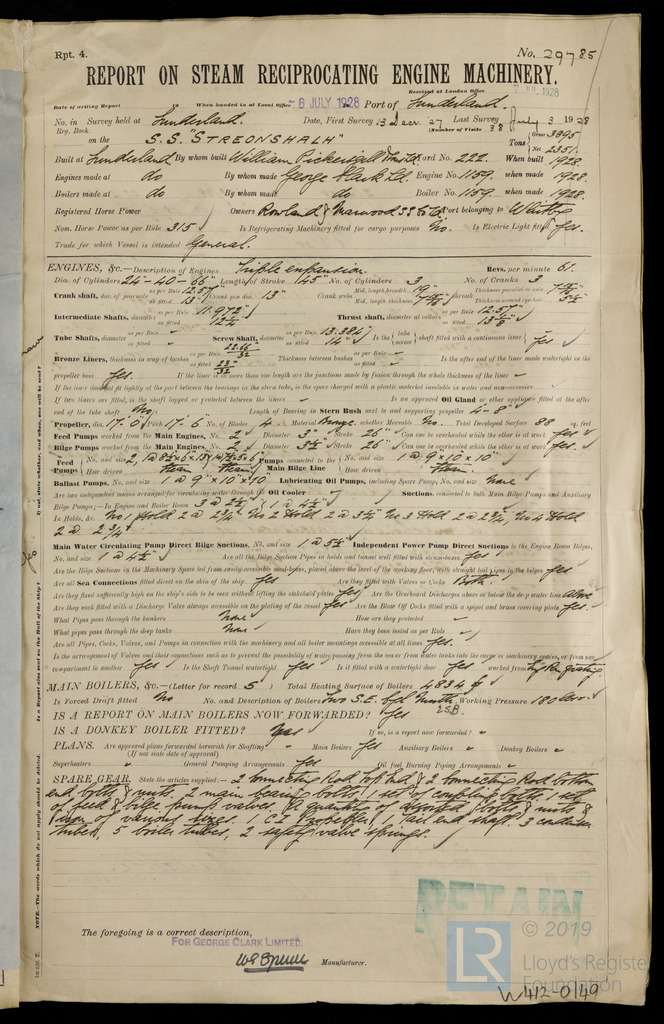 Rpt. 4. No. 29785
REPORT ON STEAM RECIPROCATING ENGINE MACHINERY.
Received at London Office
Date of writing Report When handed in at Local Office 6 JULY 1928 Port of Sunderland.
No. in Survey held at Sunderland. Date, First Survey 13 Dec. 27 Last Survey July 3 1928
Reg. Book. (Number of Visits 38
on the S.S. "STREONSHALH" Tons Gross 3895 Net 2351
Built at Sunderland By whom built William Pickersgill & Sons Ld. Yard No. 222. When built 1928.
Engines made at do By whom made George Clark Ld. Engine No. 1159. when made 1928.
Boilers made at do By whom made do Boiler No. 1159. when made 1928.
Registered Horse Power Owners Rowland & Marwood SS Co Ld Port belonging to Whitby
Nom. Horse Power as per Rule 315 Is Refrigerating Machinery fitted for cargo purposes No. Is Electric Light fitted Yes.
Trade for which Vessel is intended General.
ENGINES, &c.—Description of Engines Triple expansion. Revs. per minute 61.
Dia. of Cylinders 24"-40"-66" Length of Stroke 45" No. of Cylinders 3 No. of Cranks 3
Crank shaft, dia. of journals as per Rule 12.57" as fitted 13" Crank pin dia. 13" Crank webs Mid. length breadth 19" Mid. length thickness
Intermediate Shafts, diameter as per Rule 11.972" as fitted 12¼" Thrust shaft, diameter at collars as per Rule 12.57" as fitted
Tube Shafts, diameter as per Rule as fitted Screw Shaft, diameter as per Rule 13.384" as fitted 14" Is the tube screw shaft fitted with a continuous liner Yes
Bronze Liners, thickness in way of bushes as per Rule as fitted Thickness between bushes as per Rule as fitted Is the after end of the liner made watertight in the
propeller boss Yes. If the liner is in more than one length are the joints made by fusion through the whole thickness of the liner
If the liner does not fit tightly at the part between the bearings in the stern tube, is the space charged with a plastic material insoluble in water and non-corrosive
If two liners are fitted, is the shaft lapped or protected between the liners Is an approved Oil Gland or other appliance fitted at the after
end of the tube shaft No. Length of Bearing in Stern Bush next to and supporting propeller 4'-8"
Propeller, dia. 17'-0" Pitch 17'-6" No. of Blades 4 Material Bronze whether Moveable No. Total Developed Surface 88 sq. feet
Feed Pumps worked from the Main Engines, No. 2 Diameter 3" Stroke 26" Can one be overhauled while the other is at work Yes
Bilge Pumps worked from the Main Engines, No. 2 Diameter 3½" Stroke 26" Can one be overhauled while the other is at work Yes
Feed Pumps No. and size How driven Steam Pumps connected to the Main Bilge Line No. and size 1 @ 9" x 10" x 10" How driven Steam
Ballast Pumps, No. and size 1 @ 9" x 10" x 10" Lubricating Oil Pumps, including Spare Pump, No. and size None
Are two independent means arranged for circulating water through the Oil Cooler Suctions, connected to both Main Bilge Pumps and Auxiliary
Bilge Pumps;—In Engine and Boiler Room
In Holds, &c. No 1 Hold 2 @ 2¾" No 2 Hold 2 @ 3¼" No 3 Hold 2 @ 2¾", No 4 Hold
2 @ 2¾"
Main Water Circulating Pump Direct Bilge Suctions, No. and size 1 @ 5½" Independent Power Pump Direct Suctions to the Engine Room Bilges,
No. and size 1 @ 4½" Are all the Bilge Suction Pipes in holds and tunnel well fitted with strum-boxes Yes
Are the Bilge Suctions in the Machinery Space led from easily accessible mud-boxes, placed above the level of the working floor, with straight tail pipes to the bilges Yes
Are all Sea Connections fitted direct on the skin of the ship Yes Are they fitted with Valves or Cocks Both.
Are they fixed sufficiently high on the ship's side to be seen without lifting the stokehold plates Yes Are the Overboard Discharges above or below the deep water line Above
Are they each fitted with a Discharge Valve always accessible on the plating of the vessel Yes Are the Blow Off Cocks fitted with a spigot and brass covering plate Yes.
What Pipes pass through the bunkers None How are they protected
What pipes pass through the deep tanks None Have they been tested as per Rule
Are all Pipes, Cocks, Valves, and Pumps in connection with the machinery and all boiler mountings accessible at all times Yes.
Is the arrangement of Valves and their connections such as to prevent the possibility of water passing from the sea or from water tanks into the cargo or machinery spaces, or from one
compartment to another Yes Is the Shaft Tunnel watertight Yes Is it fitted with a watertight door Yes worked from Top Platform grating
MAIN BOILERS, &c.—(Letter for record S) Total Heating Surface of Boilers 4834 sq ft
Is Forced Draft fitted No No. and Description of Boilers Two S.E. Cyl Multr. 2SB. Working Pressure 180 lbs.
IS A REPORT ON MAIN BOILERS NOW FORWARDED? Yes
IS A DONKEY BOILER FITTED? If so, is a report now forwarded?
PLANS. Are approved plans forwarded herewith for Shafting Main Boilers Yes Auxiliary Boilers Donkey Boilers
(If not state date of approval)
Superheaters General Pumping Arrangements Yes Oil fuel Burning Piping Arrangements
SPARE GEAR. State the articles supplied:— 2 Connecting Rod top end & 2 Connecting Rod bottom
end bolts & nuts, 2 main bearing bolts, 1 set of coupling bolts, 1 set
of feed & bilge pump valves. A quantity of assorted bolts & nuts &
iron of various sizes. 1 C.I. Propeller, 1 Tail end shaft. 3 condenser
tubes, 5 boiler tubes, 2 safety valve springs.
The foregoing is a correct description,
FOR GEORGE CLARK LIMITED.
Manufacturer.
RETAIN
LR © 2019
Lloyd's Register
Foundation
W412-0149
NOTE.—The words which do not apply should be deleted.